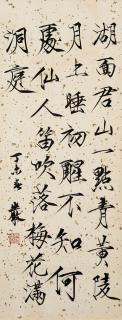 湖面君山一點青黃陵
月上睡初醒不知何
處仙人笛吹落梅花滿
洞庭
丁未